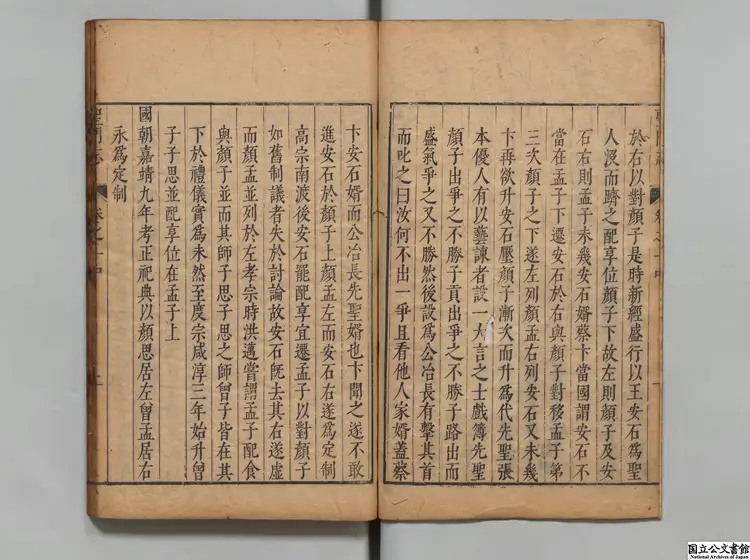 於右以對顏子是時新經盛行以王安石爲聖
人沒而躋之配享位顏子下故左則顏子及安
石右則孟子未幾安石婿蔡卞當國謂安石不
當在孟子下遷安石於右與顏子對移孟子第
三次顏子之下遂左列顏孟右列安石又未幾
卞再欲升安石壓顏子漸次而升爲代先聖張
本優人有以藝諫者設一大言之士戲簿先聖
顏子出爭之不勝子貢出爭之不勝子路出而
盛氣爭之又不勝然後設爲公冶長有擊其首
而叱之曰汝何不出一爭且看他人家婿蓋蔡
卞安石婿而公冶長先聖婿也卞聞之遂不敢
進安石於顏子上顏孟左而安石右遂爲定制
高宗南渡後安石罷配享宜遷孟子以對顏子
如舊制議者失於討論故安石旣去其右遂虛
而顏孟並列於左孝宗時洪邁嘗謂孟子配食
與顏子並而其師子思子思之師曾子皆在其
下於禮儀實爲未然至度宗咸淳三年始升曾
子子思並配享位在孟子上
國朝嘉靖九年考正祀典以顏思居左曾孟居右
永爲定制
聖門志
卷之一中
国立公文書館
National Archives of Japan